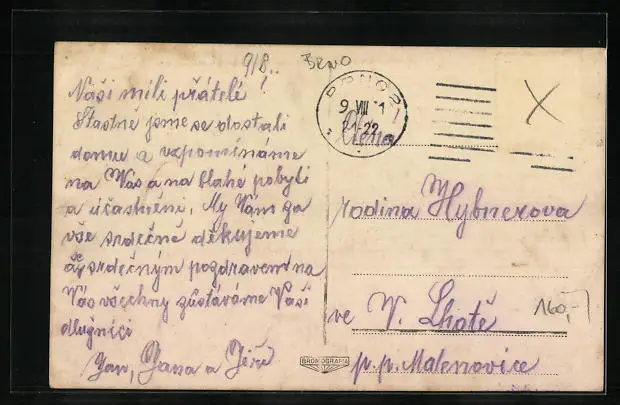 9/8..
BRNO
Naši milí přátelé!
Šťastně jsme se dostali
domu a vzpomínáme
na Vás a na blahé pobytí
a účastnění. My Vám za
vše srdečně děkujeme
a se srdečným pozdravem na
Vás všechny zůstáváme Vaši
dlužníci
Jan, Jana a Jiří
9 VIII 1
21-22
Ctěná
rodina Hybnerova
ve V. Lhotě
p.p. Malenovice
160,-
BROMOGRAFIA